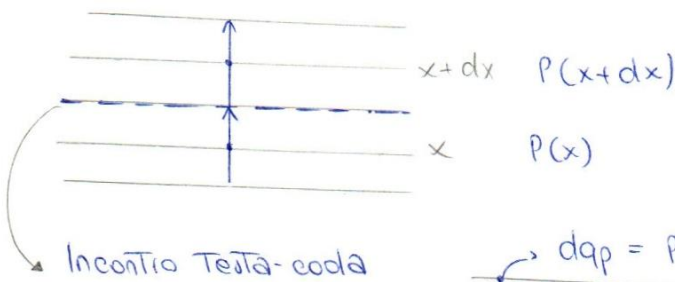 x+dx P(x+dx)
x P(x)
Incontro Testa-coda
dqp = P